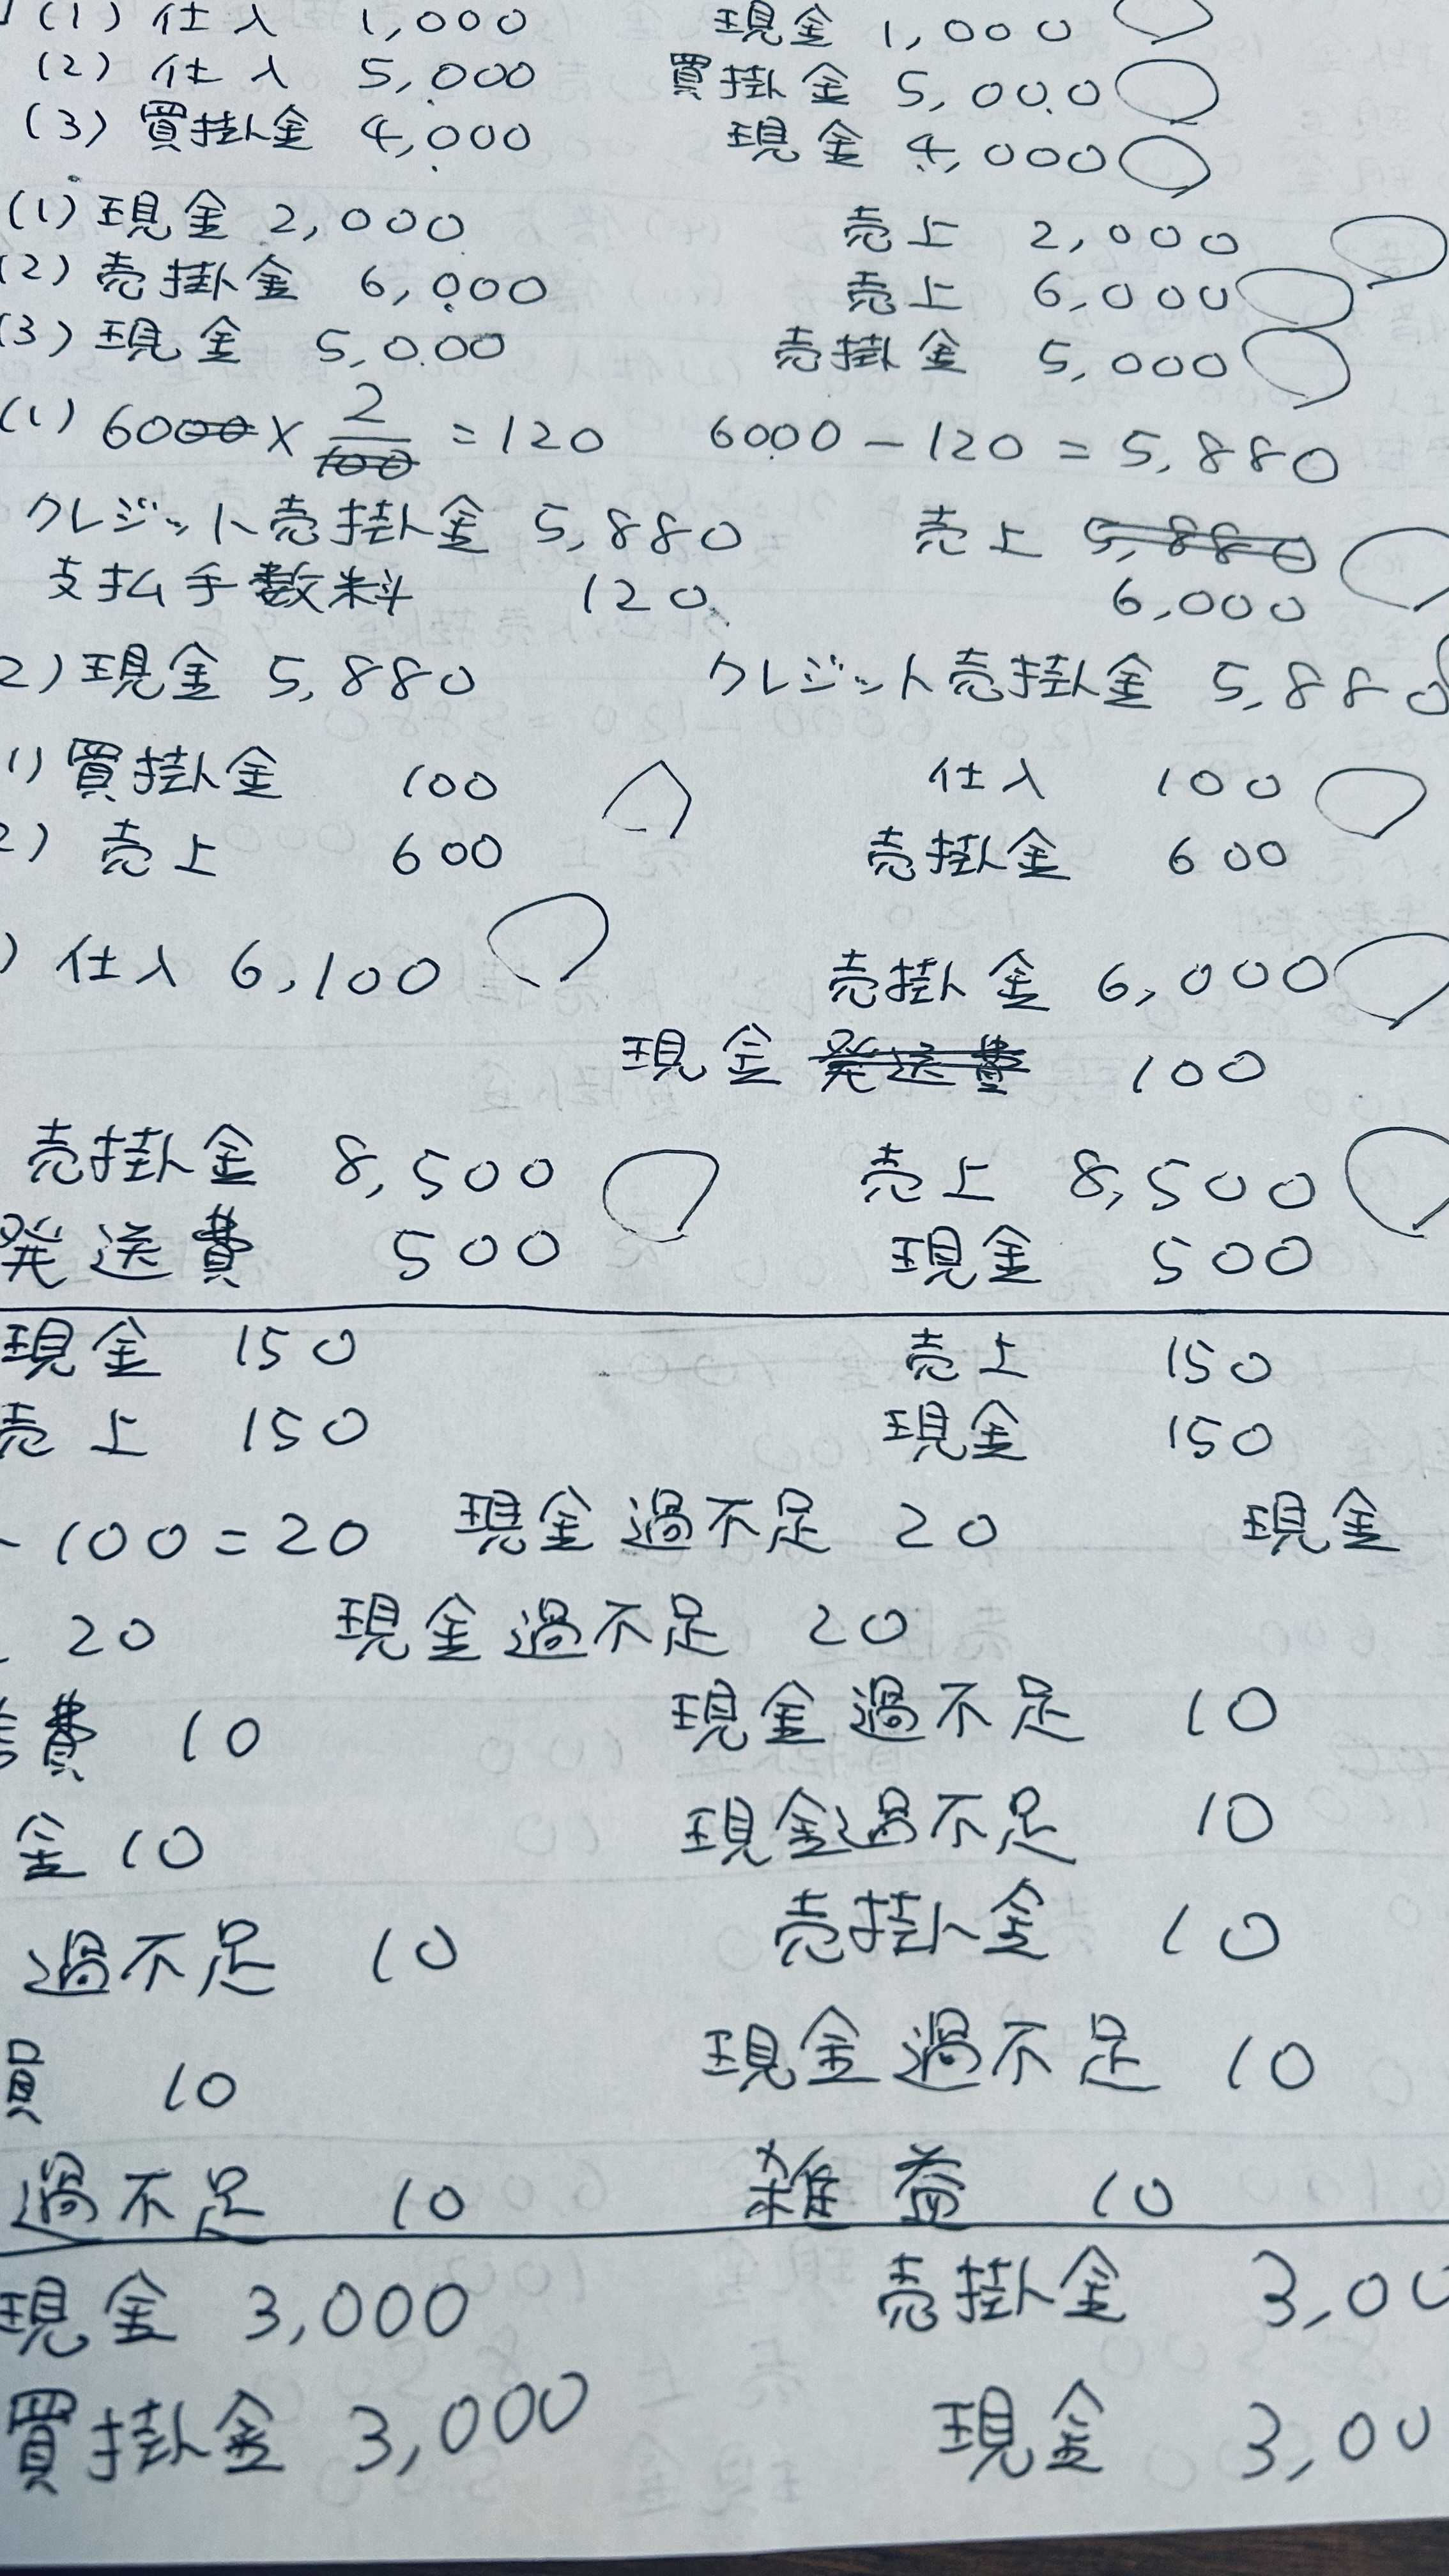 (1) 仕入 1,000 現金 1,000
(2) 仕入 5,000 買掛金 5,000
(3) 買掛金 4,000 現金 4,000
(1) 現金 2,000 売上 2,000
(2) 売掛金 6,000 売上 6,000
(3) 現金 5,000 売掛金 5,000
(1) 6000 × 2/100 = 120 6000 - 120 = 5,880
クレジット売掛金 5,880 売上 5,880
支払手数料 120 6,000
2) 現金 5,880 クレジット売掛金 5,880
1) 買掛金 100 仕入 100
2) 売上 600 売掛金 600
) 仕入 6,100 売掛金 6,000
現金 発送費 100
売掛金 8,500 売上 8,500
発送費 500 現金 500
現金 150 売上 150
売上 150 現金 150
- 100 = 20 現金過不足 20 現金
20 現金過不足 20
費 10 現金過不足 10
金 10 現金過不足 10
過不足 10 売掛金 10
10 現金過不足 10
過不足 10 雑益 10
現金 3,000 売掛金 3,00
買掛金 3,000 現金 3,00